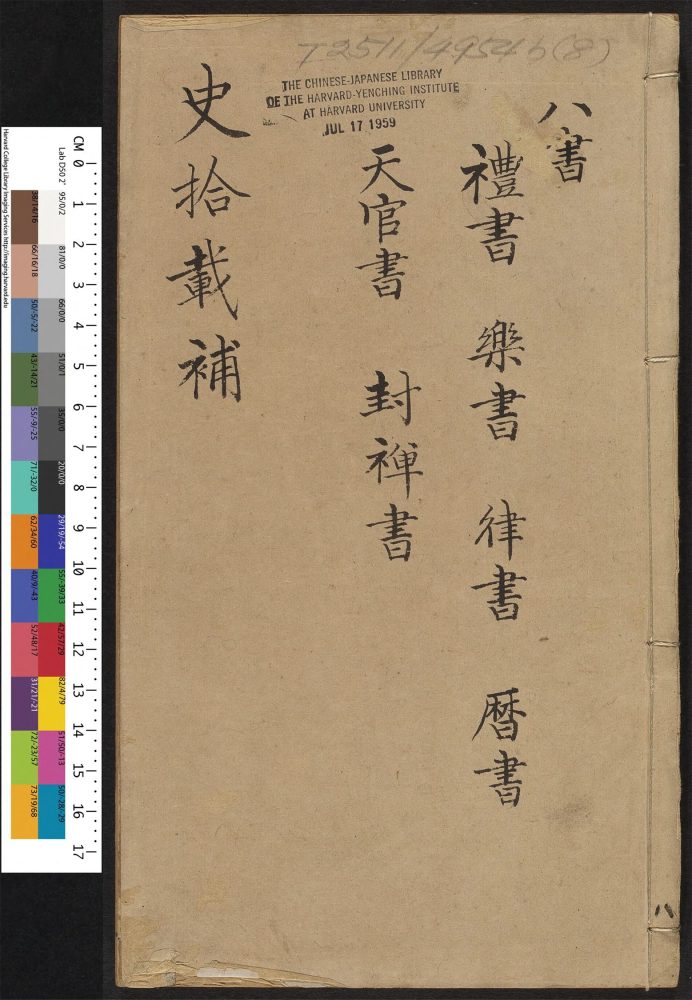 T2511/4954b(8)
THE CHINESE-JAPANESE LIBRARY
OF THE HARVARD-YENCHING INSTITUTE
AT HARVARD UNIVERSITY
JUL 17 1959
八書
禮書 樂書 律書 暦書
天官書 封禅書
史拾載補
八
CM 0 1 2 3 4 5 6 7 8 9 10 11 12 13 14 15 16 17
Lab D50 2°
95/0/2
81/0/0
66/0/0
51/0/1
35/0/0
20/0/0
29/19/-54
55/-39/33
42/57/29
82/4/79
51/50/-13
50/-28/-29
38/14/16
66/16/18
50/-5/-22
43/-14/21
55/9/-25
71/-32/0
62/34/60
40/9/-43
52/48/17
31/21/-21
72/-23/57
73/19/68
Harvard College Library Imaging Services http://imaging.harvard.edu